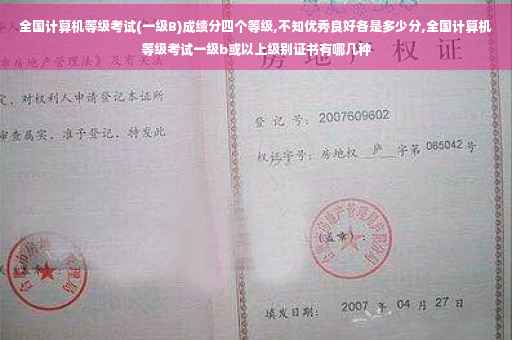 全国计算机等级考试(一级B)成绩分四个等级,不知优秀良好各是多少分,全国计算机
等级考试一级b或以上级别证书有哪几种
房地产管理法》及有关
定，对权利人申请登记本证所
审查属实，准予登记，特发此
权 证
登 记 号： 2007609602
权证字号：房地权 庐 字第 065042 号
(盖章)：
填发日期： 2007 年 04 月 27 日